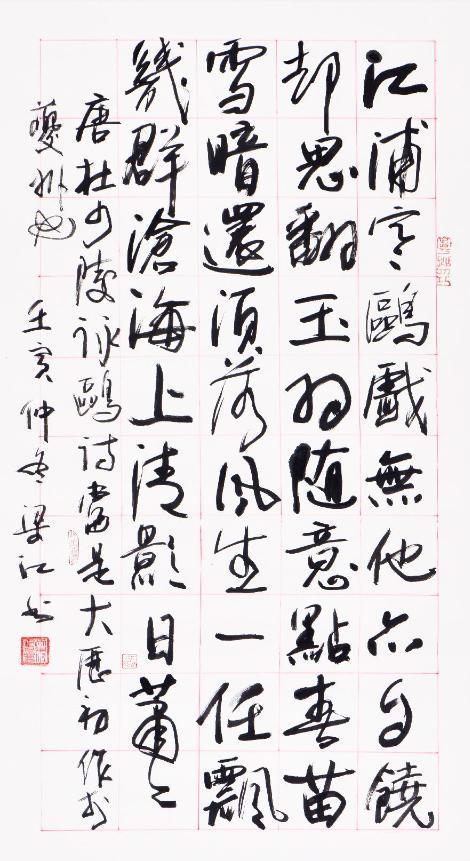 江浦寒鷗戲無他亦自饒
却思翻玉羽随意點春苗
雪暗還須落風生一任飄
幾群滄海上清影日蕭々
唐杜少陵詠鷗詩當是大曆初作於
夔州也
壬寅仲冬梁江书